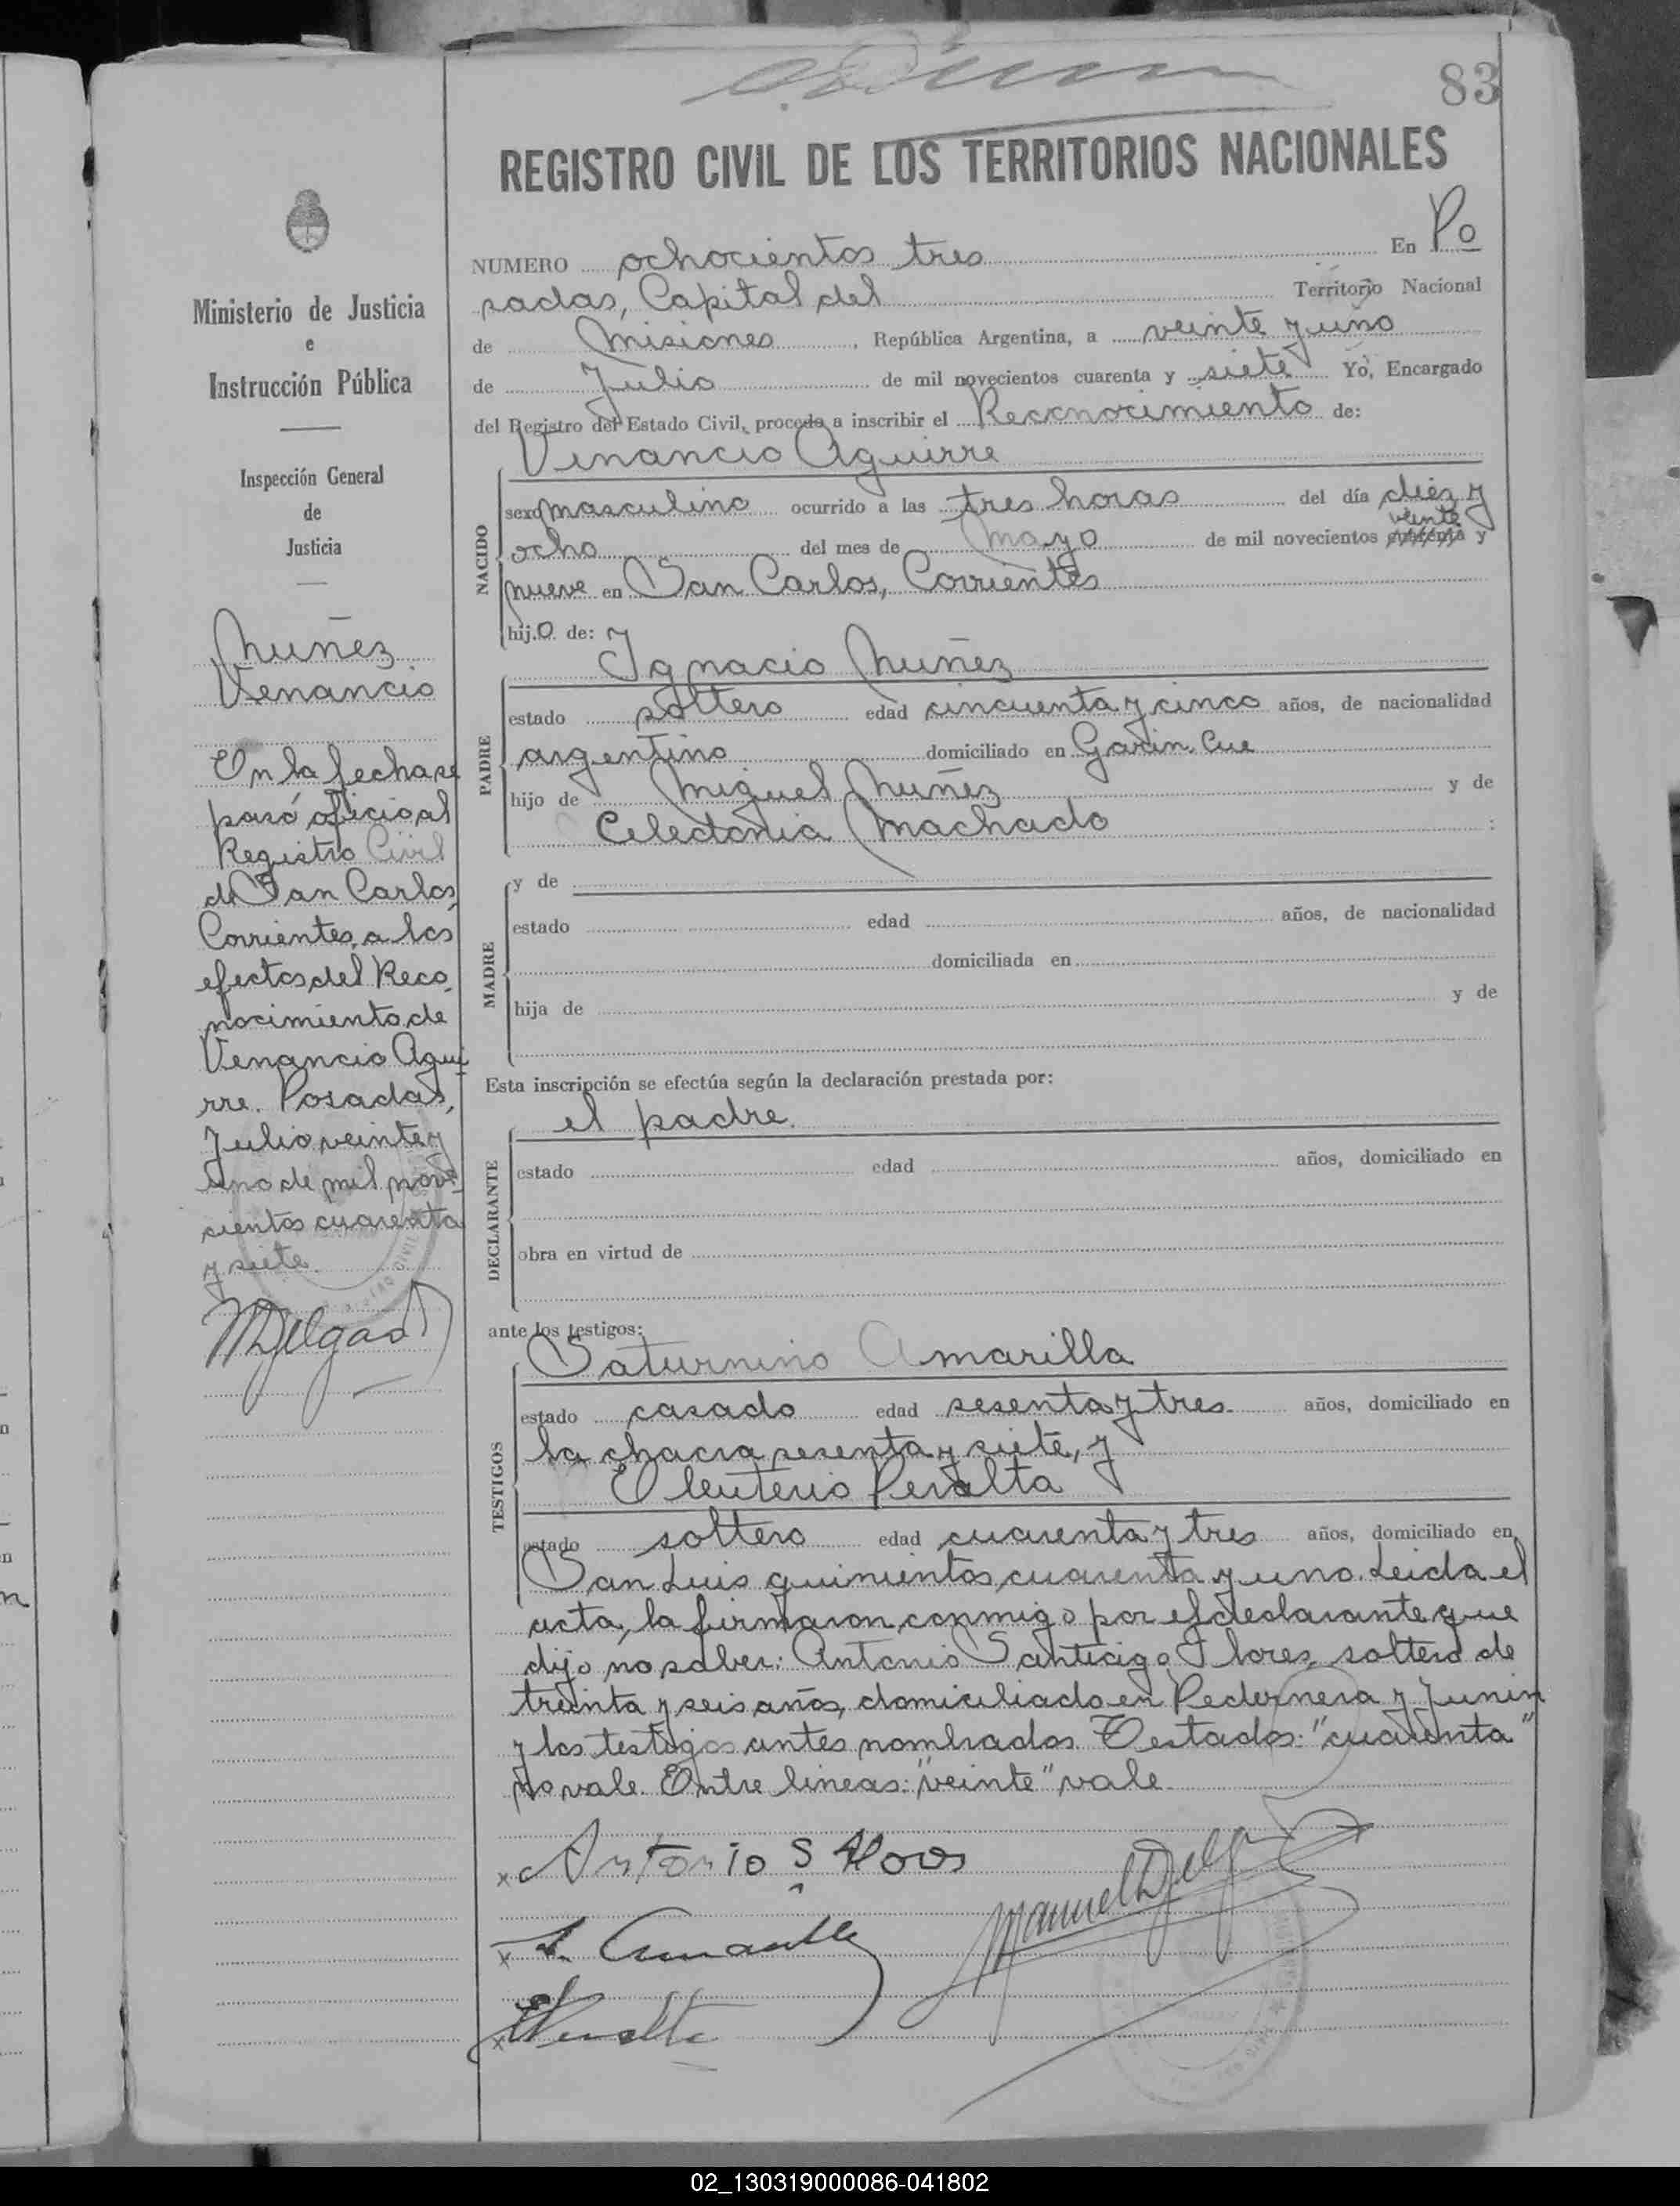 83
REGISTRO CIVIL DE LOS TERRITORIOS NACIONALES
NUMERO ochocientos tres En Po
sadas, Capital del Territorio Nacional
de Misiones, República Argentina, a veinte y uno
de Julio de mil novecientos cuarenta y siete Yo, Encargado
del Registro del Estado Civil, procedo a inscribir el Reconocimiento de:
Venancio Aguirre
NACIDO
sexo masculino ocurrido a las tres horas del día diez y
veinte
ocho del mes de mayo de mil novecientos cuarenta y
nueve en San Carlos, Corrientes
hijo de:
Ignacio Nuñez
PADRE
estado soltero edad cincuenta y cinco años, de nacionalidad
argentino domiciliado en Garin Cue
hijo de Miguel Nuñez y de
Celedonia Machado :
MADRE
y de
estado edad años, de nacionalidad
domiciliada en
hija de y de
Esta inscripción se efectúa según la declaración prestada por:
el padre.
DECLARANTE
estado edad años, domiciliado en
obra en virtud de
ante los testigos:
Saturnino Amarilla
TESTIGOS
estado casado edad sesenta y tres años, domiciliado en
la chacra sesenta y siete, y
Eleuterio Peralta
estado soltero edad cuarenta y tres años, domiciliado en
San Luis quinientos cuarenta y uno. Leida el
acta, la firmaron conmigo por el declarante que
dijo no saber: Antonio Santiago Flores, soltero de
treinta y seis años, domiciliado en Pedernera y Junin
y los testigos antes nombrados. Testado: "cuarenta"
no vale. Entre lineas: "veinte" vale.
x Antonio S Flores
Manuel Delg
x S. Amarilla
x EPeralta
Ministerio de Justicia
e
Instrucción Pública
Inspección General
de
Justicia
Nuñez
Venancio
En la fecha se
pasó oficio al
Registro Civil
de San Carlos,
Corrientes, a los
efectos del Reco
nocimiento de
Venancio Agui
rre. Posadas,
Julio veinte y
uno de mil nove
cientos cuarenta
y siete.
MDelgado
02_130319000086-041802